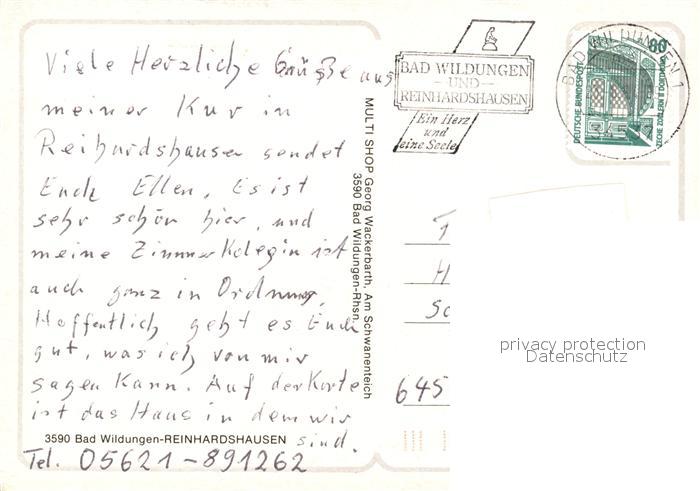 Viele Herzliche Grüße aus
meiner Kur in
Reihardshausen sendet
Euch Ellen, Es ist
sehr schön hier, und
meine Zimmerkolegin ist
auch ganz in Ordnung,
Hoffentlich geht es Euch
gut, was ich von mir
sagen Kann. Auf der Karte
ist das Haus in dem wir
sind.
3590 Bad Wildungen-REINHARDSHAUSEN
Tel. 05621-891262
MULTI SHOP Georg Wackerbarth, Am Schwanenteich
3590 Bad Wildungen-Rhsn.
BAD WILDUNGEN
-UND-
REINHARDSHAUSEN
Ein Herz
und
eine Seele
BAD WILDUNGEN 1
80
DEUTSCHE BUNDESPOST
ZECHE ZOLLERN II DORTMUND
T
H
Sc
645
privacy protection
Datenschutz